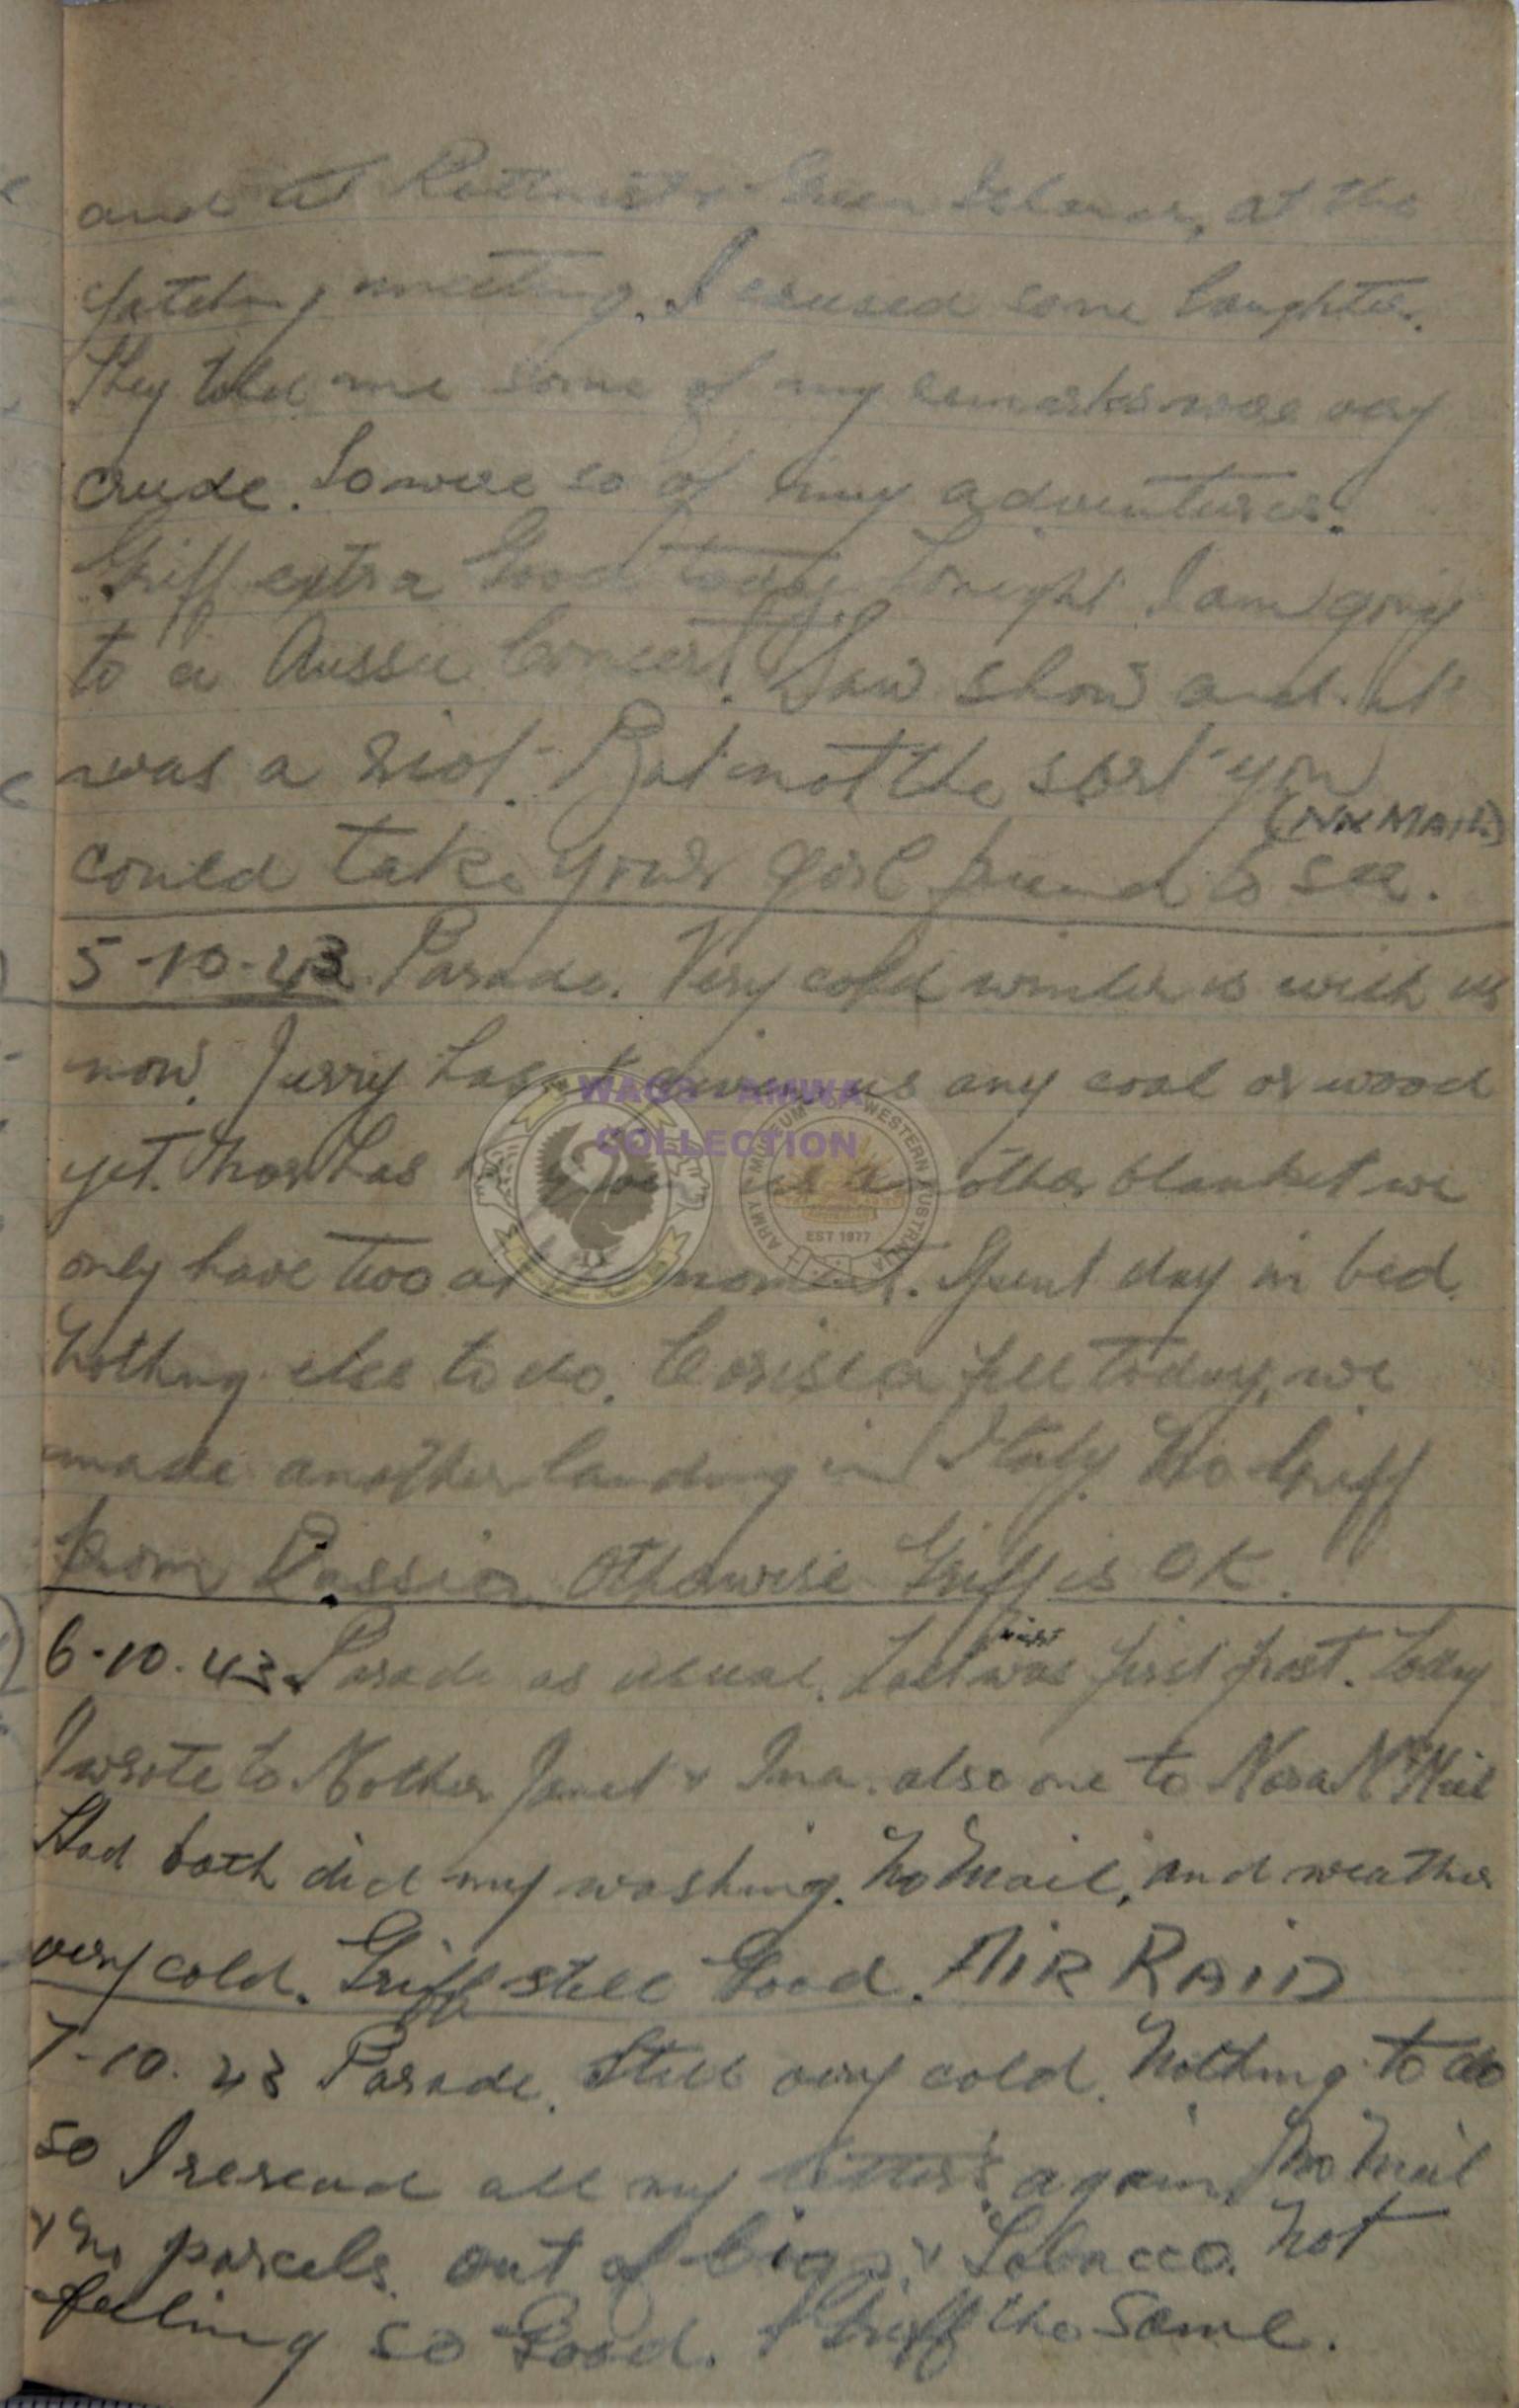 and at Rottnest & Green Island, at the
yatching meeting. I caused some laughter.
They told me some of my remarks were very
crude. So were so of my adventures.
Griff extra Good today Tonight I am going
to a Aussie Concert. Saw show and it
was a riot. But not the sort you
(NX MAIL)
could take your girl friend to see.
5-10-43 Parade. Very cold winter is with us
now. Jerry hasnt given us any coal or wood
yet. Nor has he given us another blanket we
only have two at the moment. Spent day in bed.
Nothing else to do. Corsica fell today, we
made another landing in Italy. No Griff
from Russia Otherwise Griff is OK.
6-10-43 Parade as usual. Last night was first frost. Today
I wrote to Mother Janet & Ina. also one to Nora McNeil
Had bath did my washing. No Mail, and weather
very cold. Griff still Good. AIR RAID
7-10-43 Parade. Still very cold. Nothing to do
so I reread all my letters again. No Mail
& No parcels. out of Cigs & Tobacco. Not
feeling so Good. & Griff the Same.
WAGS AMWA
COLLECTION
ARMY MUSEUM OF WESTERN AUSTRALIA
EST 1977